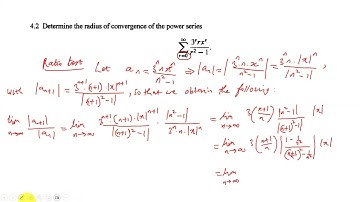 4.2 Determine the radius of convergence of the power series
\sum_{r=0}^{\infty} \frac{3^r r x^r}{r^2 - 1}.
Ratio test Let a_n = \frac{3^n n x^n}{n^2 - 1} ⇒ |a_n| = \left|\frac{3^n n \cdot x^n}{n^2 - 1}\right| = \frac{3^n \cdot n \cdot |x|^n}{|n^2 - 1|}
with |a_{n+1}| = \frac{3^{n+1} (n+1) \cdot |x|^{n+1}}{|(n+1)^2 - 1|}, so that we obtain the following:
\lim_{n→∞} \frac{|a_{n+1}|}{|a_n|} = \lim_{n→∞} \frac{3^{n+1} (n+1) \cdot |x|^{n+1}}{|(n+1)^2 - 1|} \cdot \frac{|n^2 - 1|}{3^n \cdot n \cdot |x|^n} = \lim_{n→∞} 3 \left(\frac{n+1}{n}\right) \frac{|n^2 - 1|}{|(n+1)^2 - 1|} |x|
= \lim_{n→∞} 3 \left(\frac{n+1}{n}\right) \left|\frac{1 - \frac{1}{n^2}}{\left(\frac{n+1}{n}\right)^2 - \frac{1}{n^2}}\right| |x|
= \lim_{n→∞}